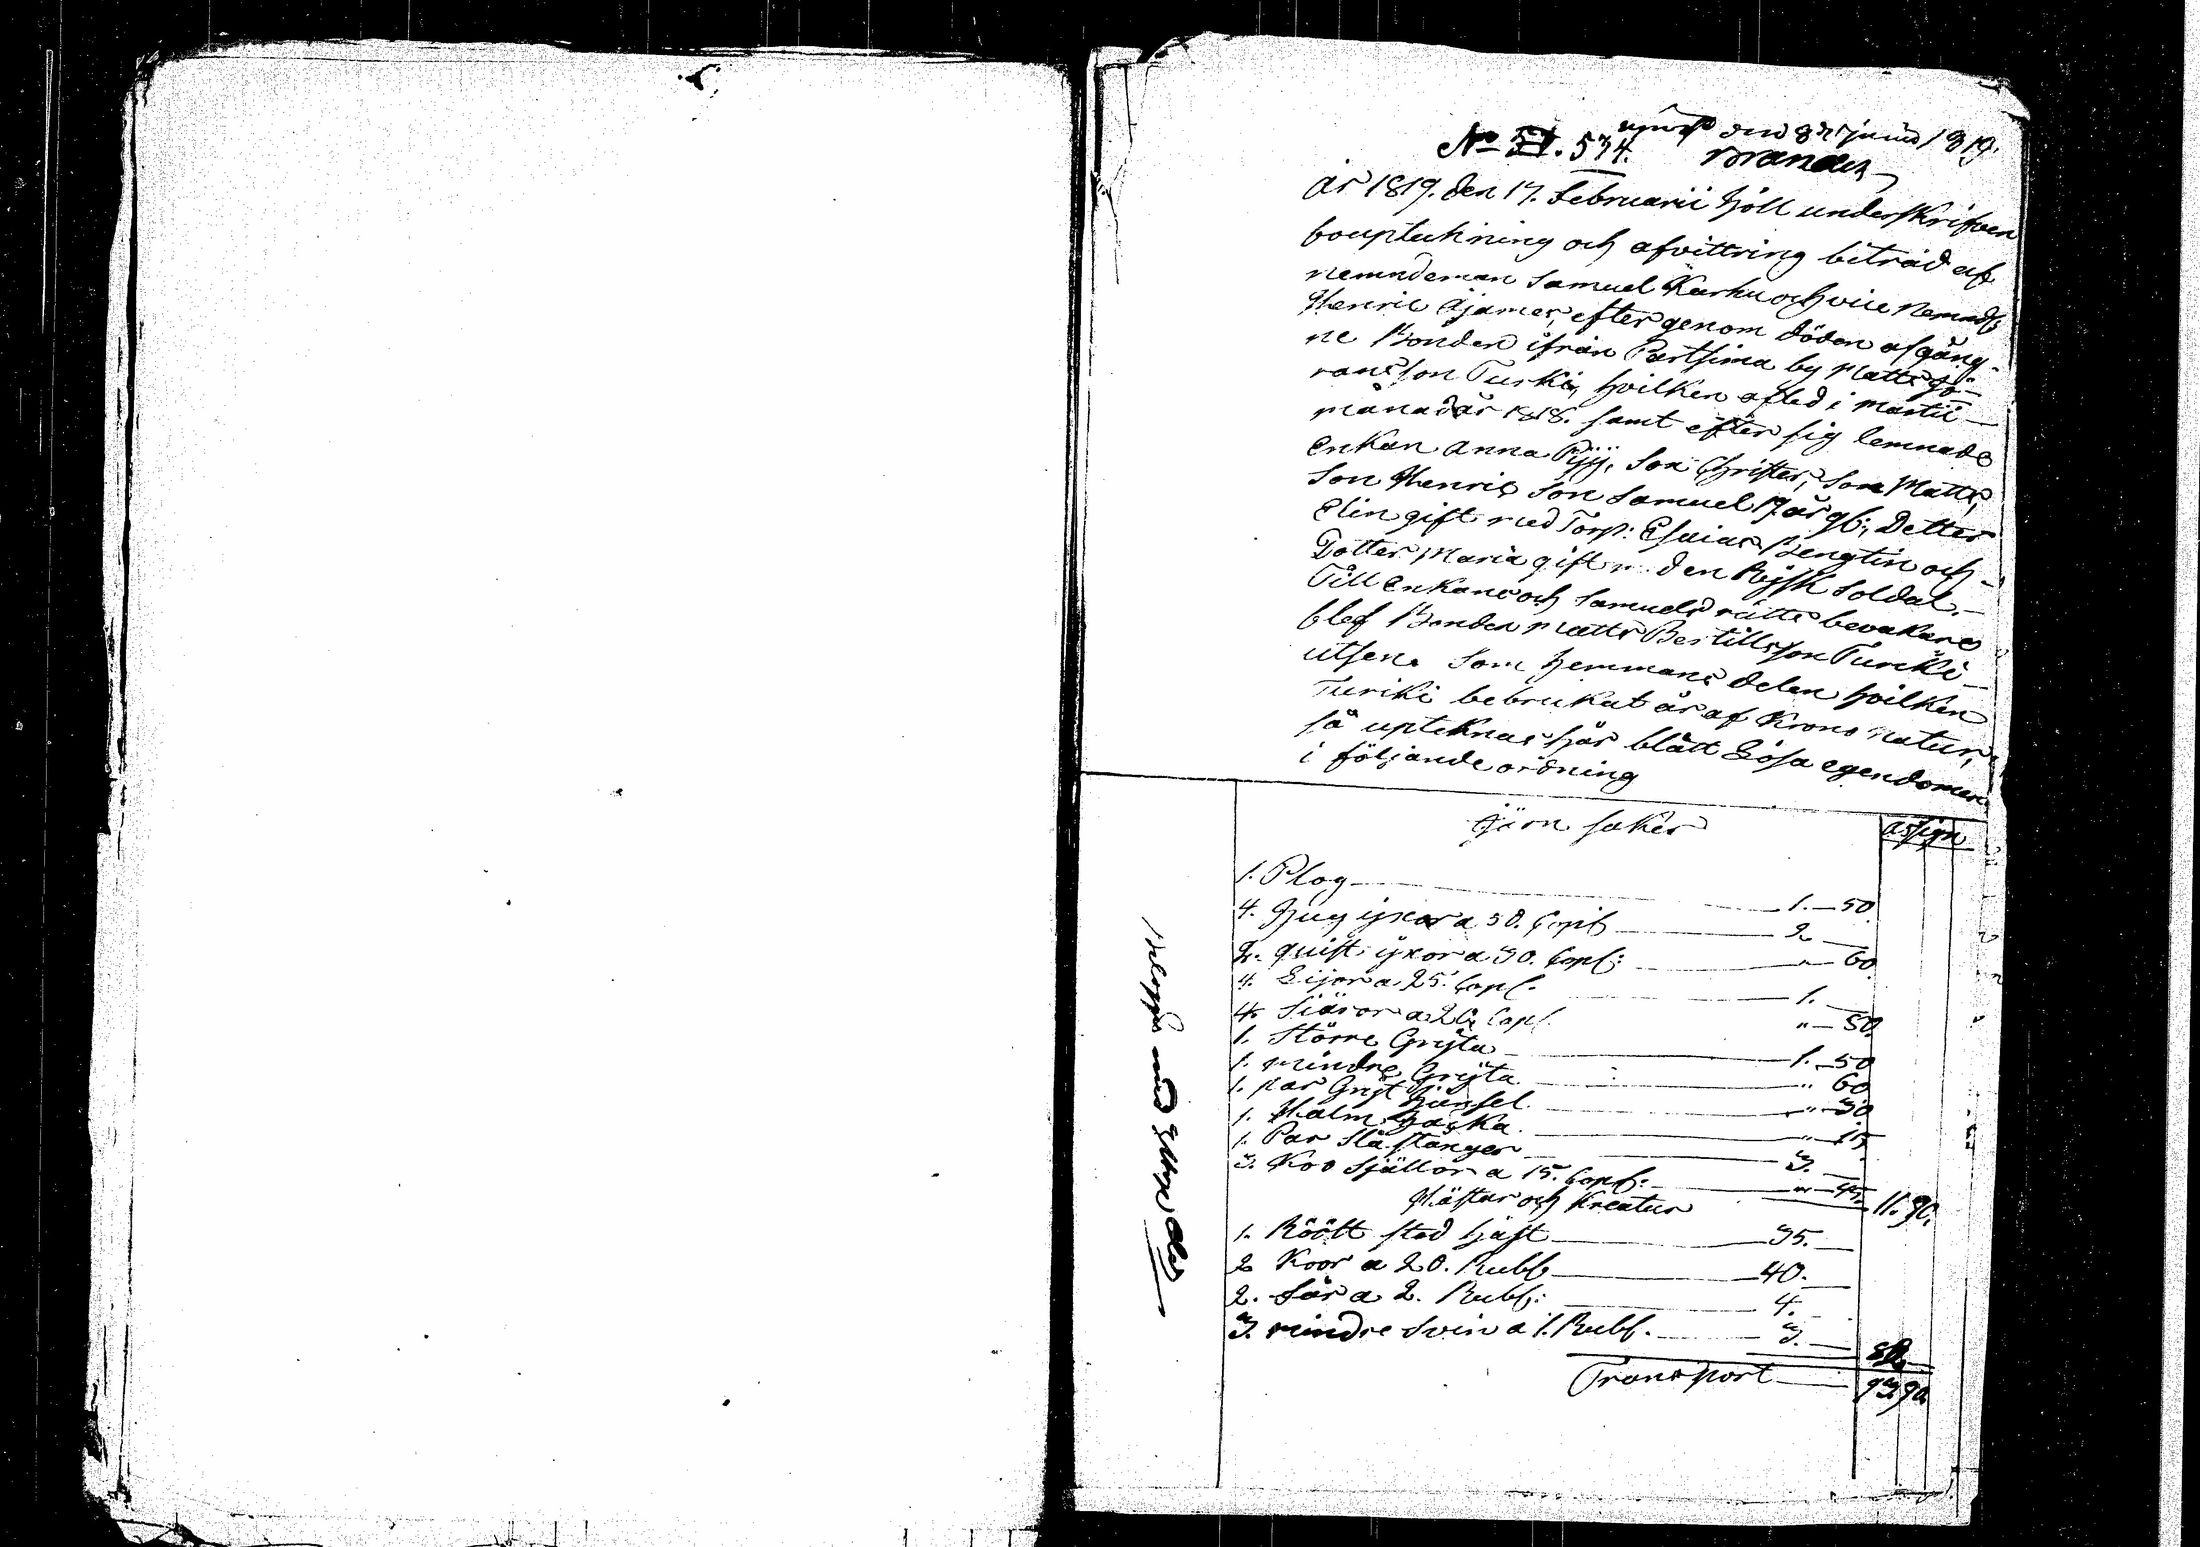 No 534. den 8de junii 1819.
Brander
år 1819. den 17. Februarii höll underskrifven
boupteckning och afvittring biträd af
nemndeman Samuel Karhu och vice Nemndm
Henric Äjames, efter genom döden afgång-
ne Bonden ifrån Partsima by Matts Jö-
ransson Turki, hvilken afled i martii
månad år 1818. samt efter sig lemnade
Enkan Anna Pyy, Son Christer, Son Matts,
Son Henric Son Samuel 17 år gl:, Detter
Elin gift med Torp: Esaias Bengtin och
Dotter Maria gift m. den Rysk Soldat.
Till Enkans och Samuels rätts bevakare
blef Bonden Matts Bertillsson Turcki
utsen. Som hemmans delen hvilken
Turiki bebrukat är af Krono natur,
så upteknas här blått Lösa egendomen
i följande ordning
Järn saker assign
1. Plog 1. 50
4. yxor a 50. Cop: 2
2. quist yxor a 30. Cop: " 60
4. Lijor a 25. Cop. 1.
4. Skäror a Cop. " 50
1. Större Gryta 1. 50
1. mindre Gryta " 60
1. par Gryt hänsel " 30
1. Halm hacka " 15
1. Par Slå stänger 3.
3. Koo Själlor a 15. Cop: " 45 11. 90.
Hästar och Kreatur
1. Röött stod häst 35.
2 Koor a 20. Rub: 40.
2. Får a 2. Rub: 4.
3. mindre Svin a 1. Rub. 3. 82
Transport 93 90